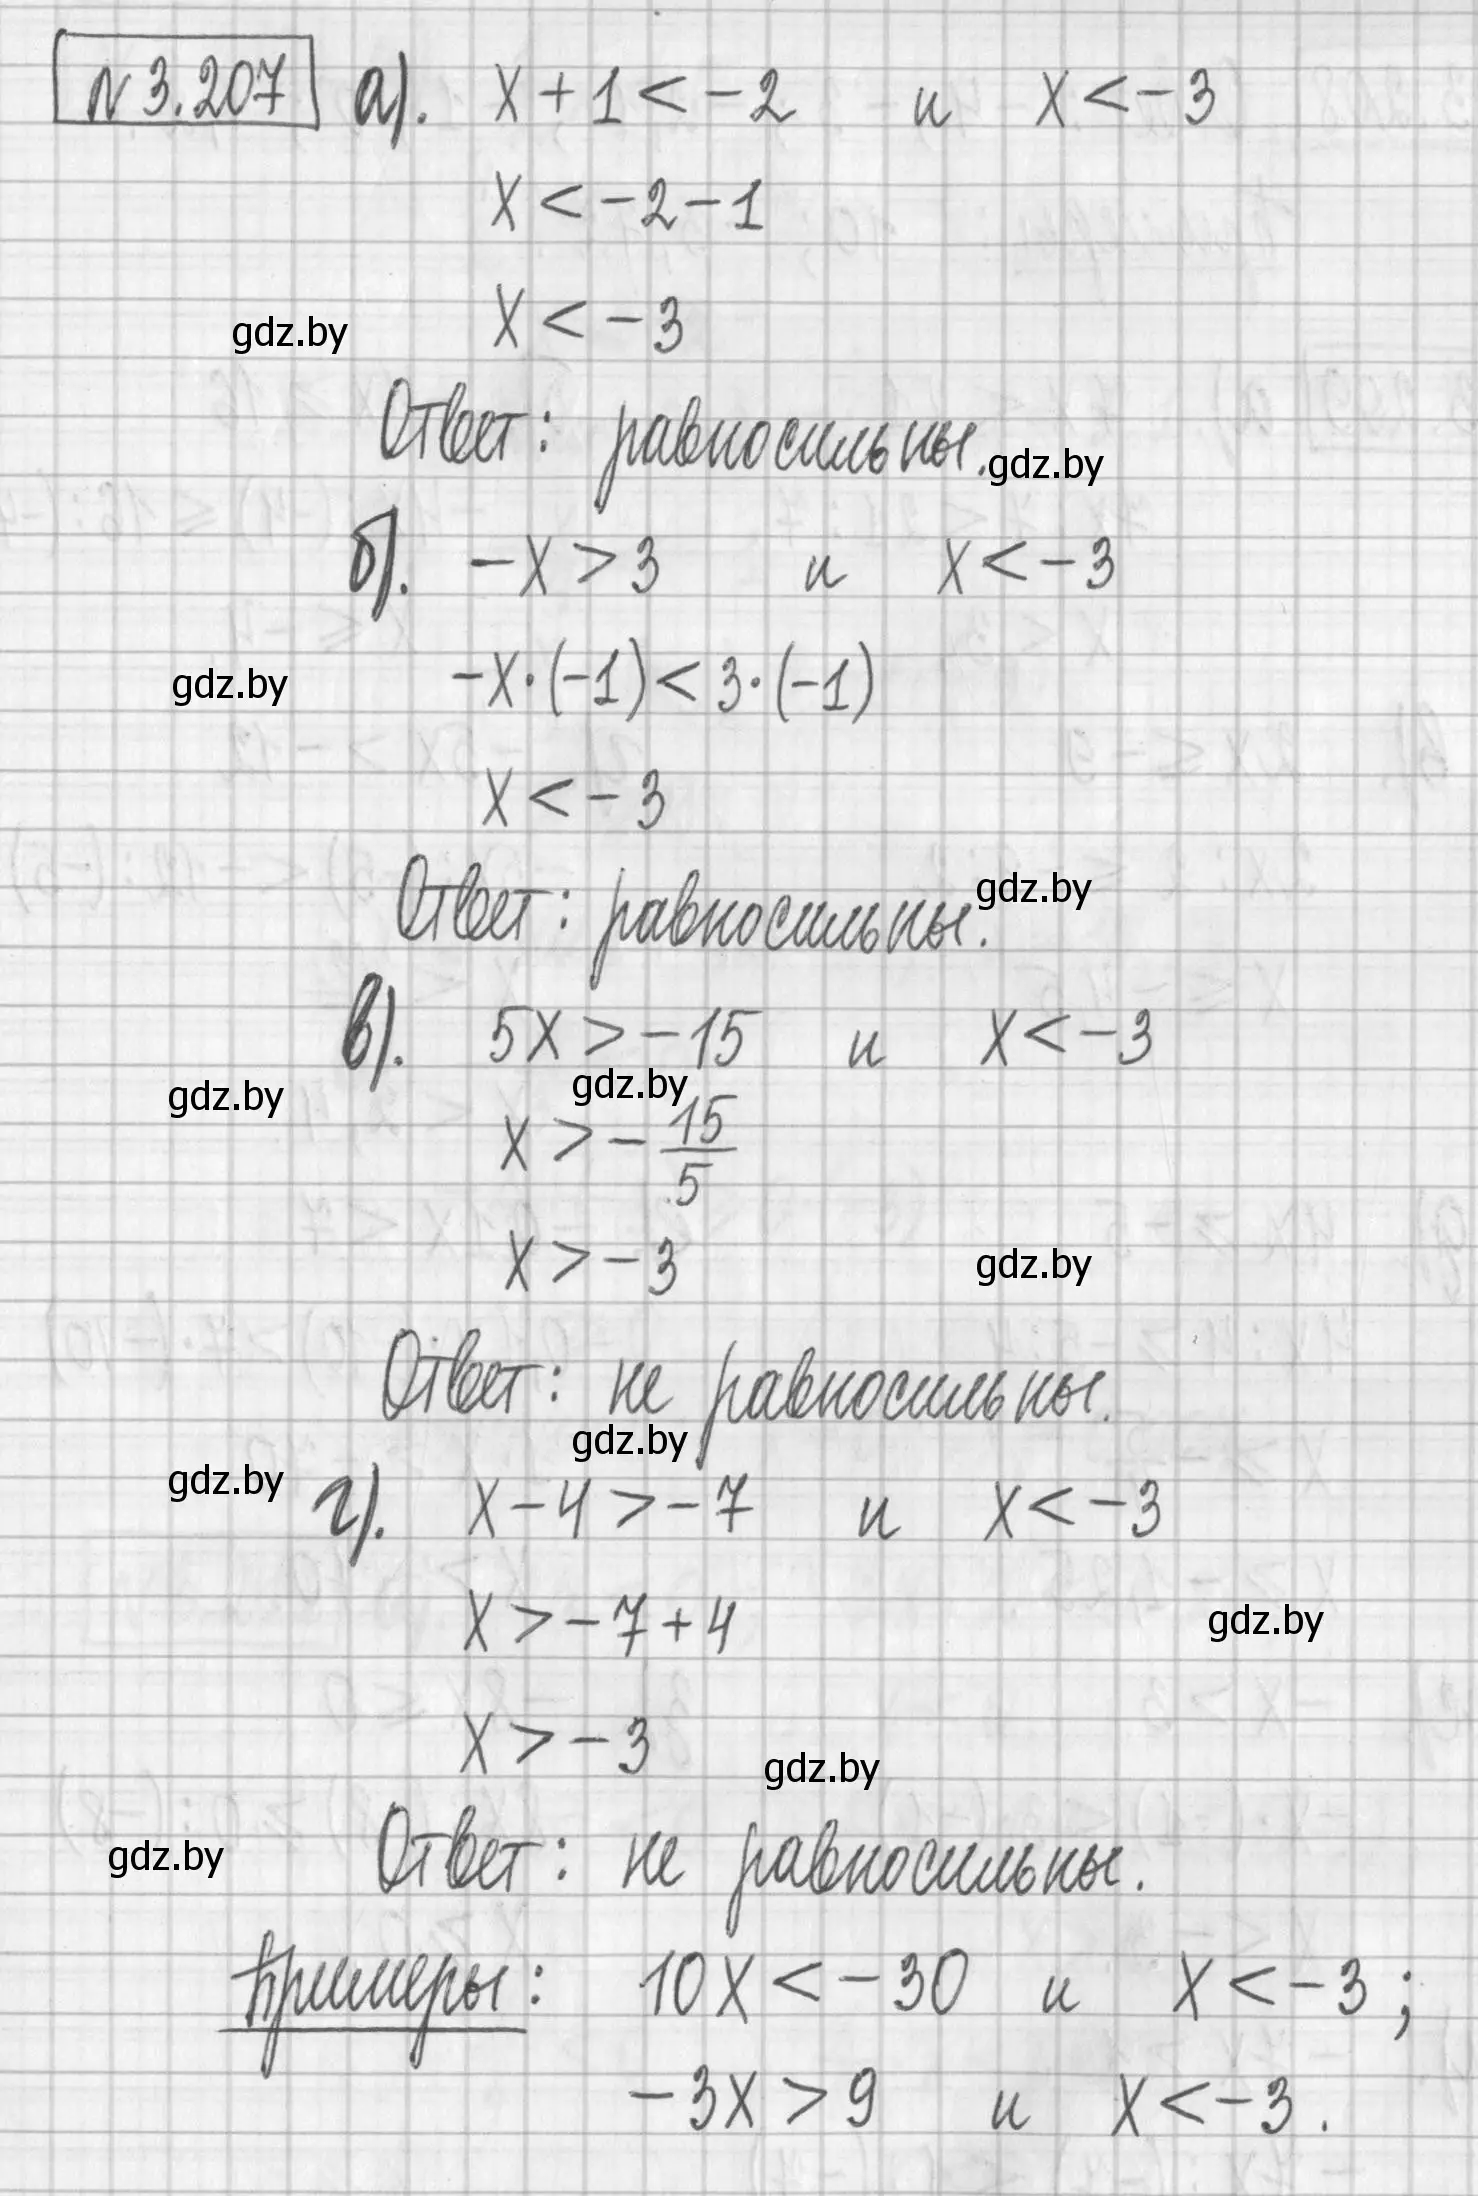 N 3.207 а). x + 1 < -2 и x < -3
x < -2 - 1
x < -3
gdz.by
Ответ: равносильны.
gdz.by
б). -x > 3 и x < -3
-x · (-1) < 3 · (-1)
gdz.by
x < -3
gdz.by
Ответ: равносильны.
в). 5x > -15 и x < -3
gdz.by
gdz.by
x > - 15/5
x > -3
gdz.by
Ответ: не равносильны.
gdz.by
gdz.by
г). x - 4 > -7 и x < -3
x > -7 + 4
gdz.by
x > -3
gdz.by
Ответ: не равносильны.
gdz.by
Примеры: 10x < -30 и x < -3;
-3x > 9 и x < -3.